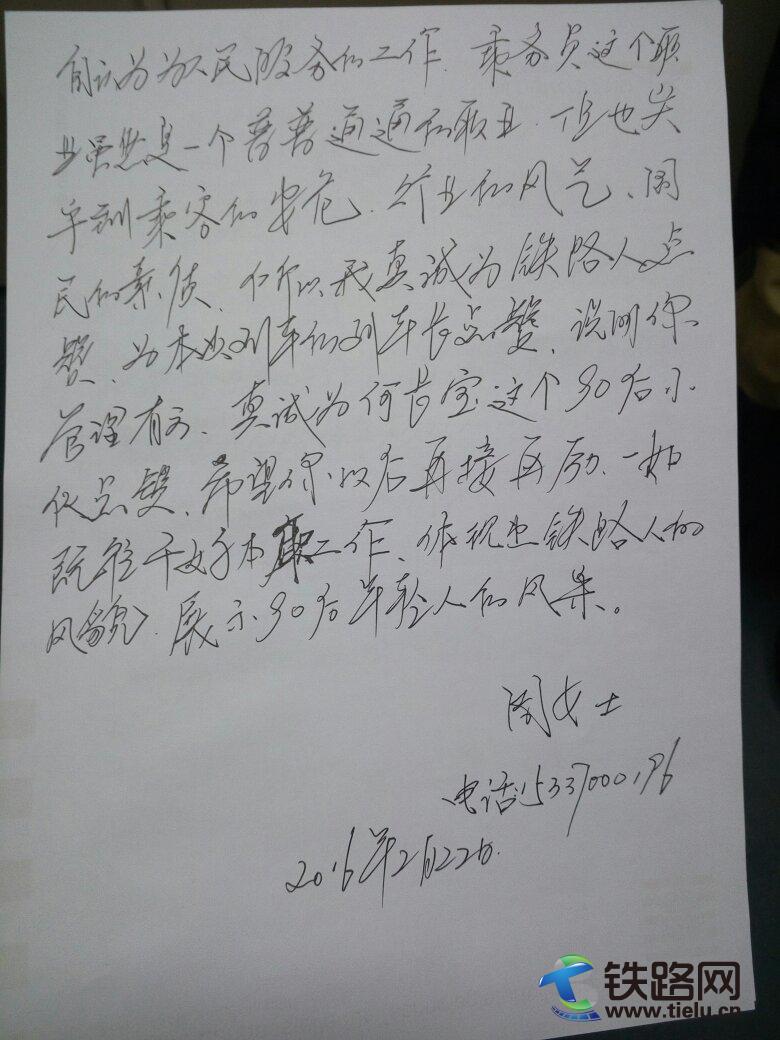 自认为为人民服务的工作、乘务员这个职
业虽然是一个普普通通的职业、但也关
乎到乘客的安危、行业的风气、国
民的素质、所以我真诚为铁路人点
赞、为本次列车的列车长点赞、说明你
管理有方、真诚为何长宝这个90后小
伙点赞、希望你以后再接再励、一如
既往干好本职工作、体现出铁路人的
风貌、展示90后年轻人的风采。
女士
电话
2016年2月22日.
铁路网
www.tielu.cn